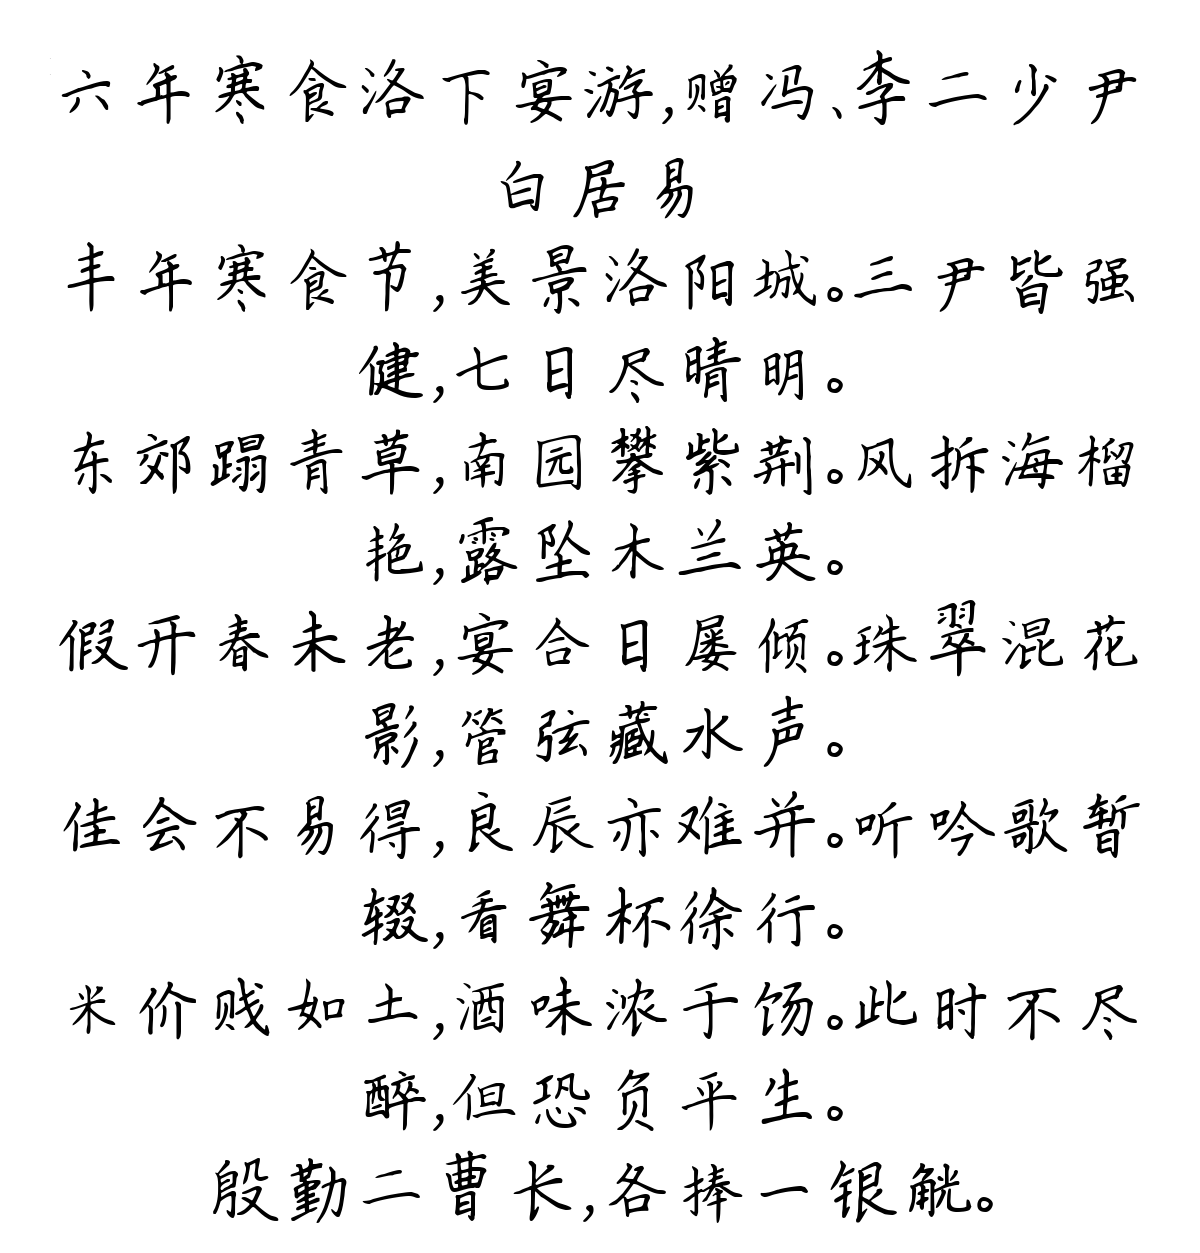 六年寒食洛下宴游,赠冯、李二少尹
白居易
丰年寒食节,美景洛阳城。三尹皆强
健,七日尽晴明。
东郊蹋青草,南园攀紫荆。风拆海榴
艳,露坠木兰英。
假开春未老,宴合日屡倾。珠翠混花
影,管弦藏水声。
佳会不易得,良辰亦难并。听吟歌暂
辍,看舞杯徐行。
米价贱如土,酒味浓于饧。此时不尽
醉,但恐负平生。
殷勤二曹长,各捧一银觥。